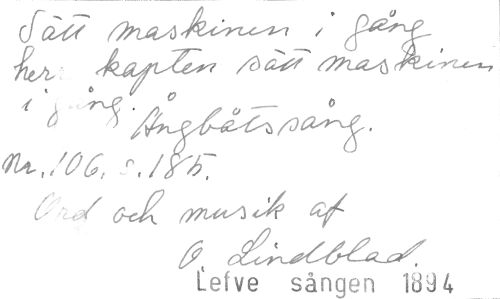 Sätt maskinen i gång
herr kapten sätt maskinen
i gång.
Ångbåtssång.
Nr. 106, s. 185.
Ord och musik af
O. Lindblad.
Lefve sången 1894